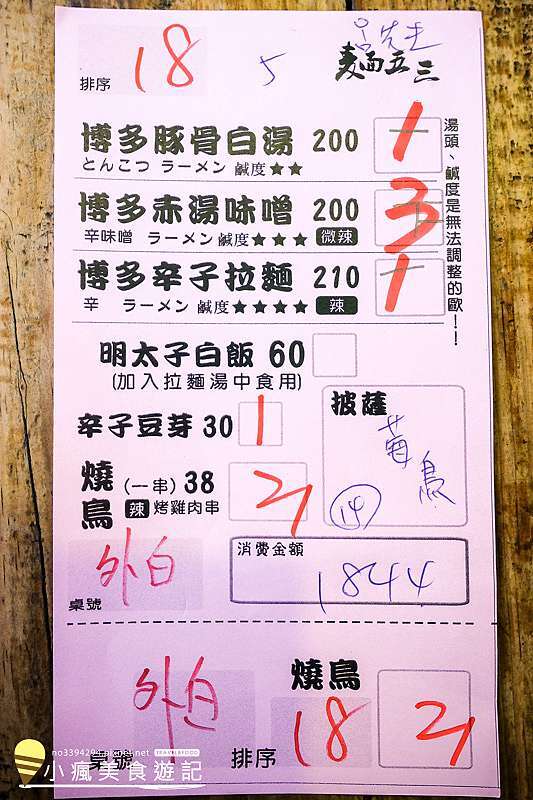 排序 18 5 呂先生 麵五三
博多豚骨白湯 200 1
とんこつ ラーメン 鹹度★★
博多赤湯味噌 200 3
辛味噌 ラーメン 鹹度★★★ 微辣
博多辛子拉麵 210 1
辛 ラーメン 鹹度★★★★ 辣
湯頭、鹹度是無法調整的歐!!
明太子白飯 60
(加入拉麵湯中食用)
辛子豆芽 30 1
燒鳥 (一串) 38 2
辣 烤雞肉串
披薩
鳥
14
桌號 外白
消費金額
1844
外白
燒鳥
桌號 排序 18 2
no3394294.pixnet.net TRAVEL&FOOD
小瘋美食遊記